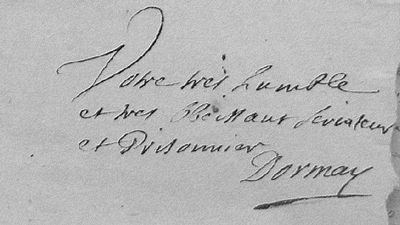 Votre tres humble
et tres obeissant serviteur
et Prisonnier
Dormay